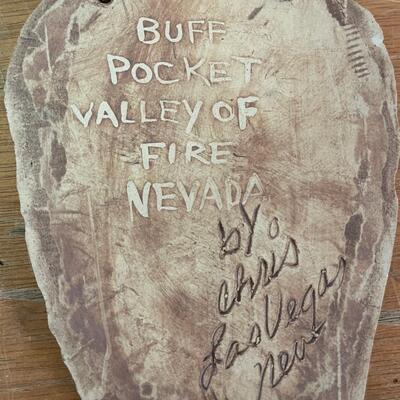 BUFF
POCKET
VALLEY OF
FIRE
NEVADA
by
Chris
Las Vegas
Nev